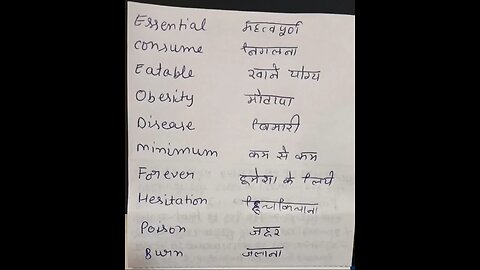 Essential महत्वपूर्ण
consume निगलना
Eatable खाने योग्य
Obesity मोटापा
Disease बिमारी
minimum कम से कम
Forever हमेशा के लिये
Hesitation हिचकिचाना
Poison जहर
Burn जलाना